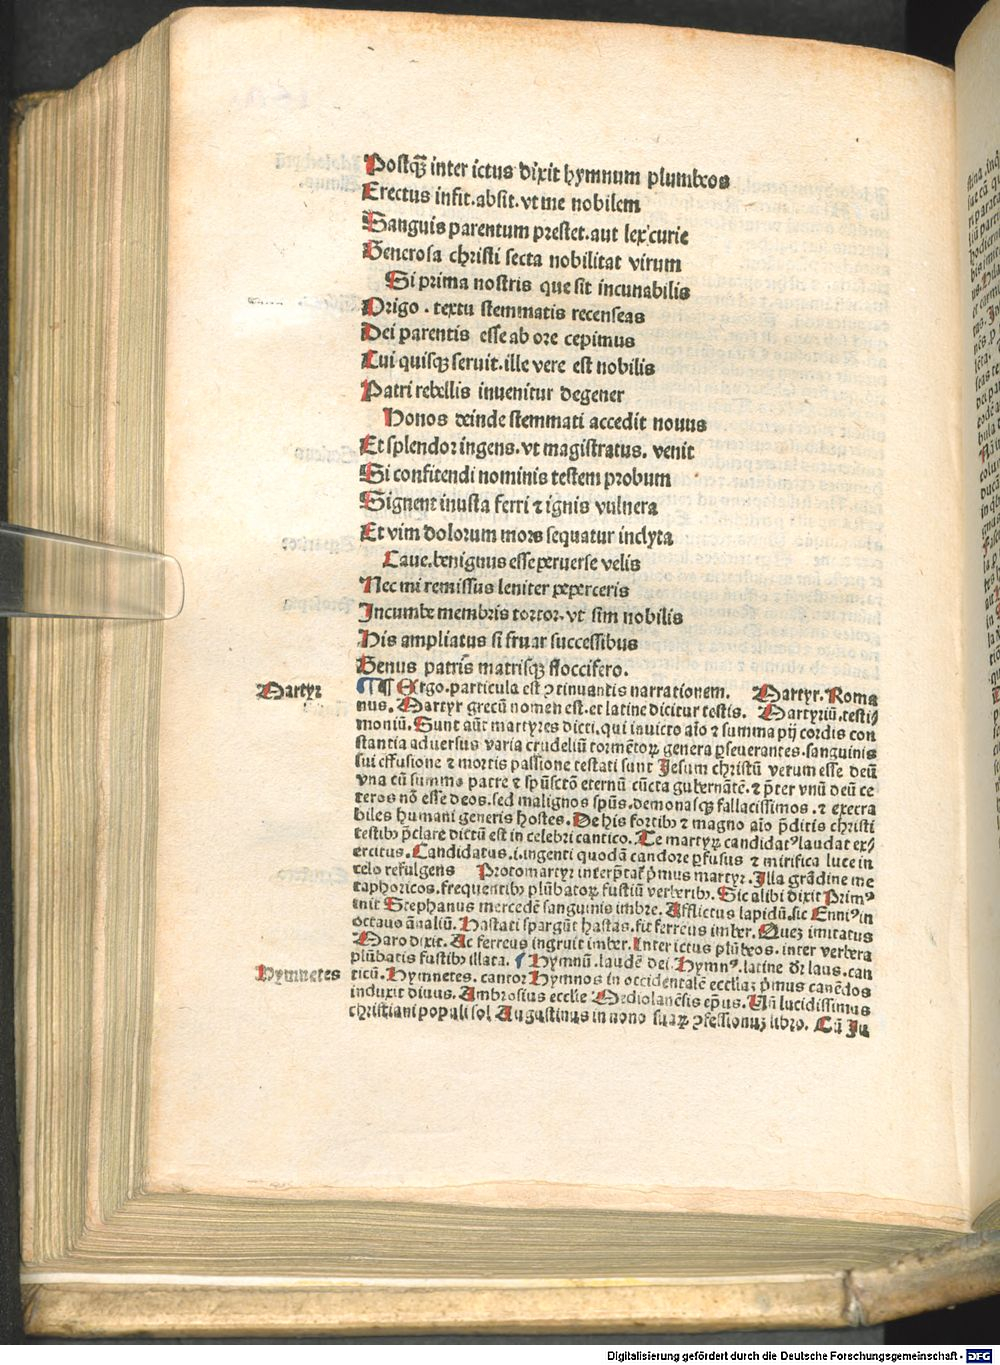 Postqȝ inter ictus dixit hymnum plumbeos
Erectus infit.absit.vt me nobilem
Sanguis parentum prestet.aut lex curie
Generosa christi secta nobilitat virum
Si prima nostris que sit incunabilis
Origo . textu stemmatis recenseas
Dei parentis esse ab ore cepimus
Cui quisqȝ seruit.ille vere est nobilis
Patri rebellis inuenitur degener
Honos deinde stemmati accedit nouus
Et splendor ingens.vt magistratus. venit
Si confitendi nominis testem probum
Signent inusta ferri ⁊ ignis vulnera
Et vim dolorum mors sequatur inclyta
Caue.benignus esse peruerse velis
Nec mi remissus leniter peperceris
Incumbe membris tortor.vt sim nobilis
His ampliatus si fruar successibus
Genus patris matrisqȝ floccifero.
Martyr
¶¶ Ergo.particula est ꝯtinuantis narrationem. Martyr.Roma
nus. Martyr grecū nomen est.et latine dicitur testis. Martyriū.testi/
moniū.Sunt aūt martyres dicti.qui inuicto aīo ⁊ summa pij cordis con
stantia aduersus varia crudeliū tormētoꝝ genera ꝑseuerantes.sanguinis
sui effusione ⁊ mortis passione testati sunt Jesum christū verum esse deū
vna cū summo patre ⁊ spūsctō eternū cūcta gubernātē.⁊ p̄ter vnū deū ce
teros nō esse deos.sed malignos spūs.demonasqȝ fallacissimos.⁊ execra
biles humani generis hostes.De his fortibꝰ ⁊ magno aīo p̄ditis christi
testibꝰ p̄clare dictū est in celebri cantico. Te martyrꝝ candidatꝰ laudat ex/
ercitus.Candidatus.i.ingenti quodā candore ꝑfusus ⁊ mirifica luce in
celo refulgens Protomartyr interp̄tat̄ p̄mus martyr.Illa grādine me
taphoricos.frequentibꝰ plūbatoꝝ fustiū verberibꝰ.Sic alibi dixit Primꝰ
init Stephanus mercedē sanguinis imbre.Afflictus lapidū.sic Enniꝰ in
octauo ānaliū.Hastati spargūt hastas.fit ferreus imber.Quez imitatus
Maro dixit.Ac ferreus ingruit imber.Inter ictus plūbeos.inter verbera
plūbatis fustibꝰ illata. ¶ Hymnū.laudē dei.Hymnꝰ.latine dr̄ laus.can
Hymnetes
ticū.Hymnetes.cantor Hymnos in occidentalē eccliaȝ p̄mus canēdos
induxit diuus.Ambrosius ecclie Mediolanēsis ep̄us.Uñ lucidissimus
christiani populi sol Augustinus in nono suaꝝ ꝯfessionuȝ libro. Cū Ju
Digitalisierung gefördert durch die Deutsche Forschungsgemeinschaft - DFG